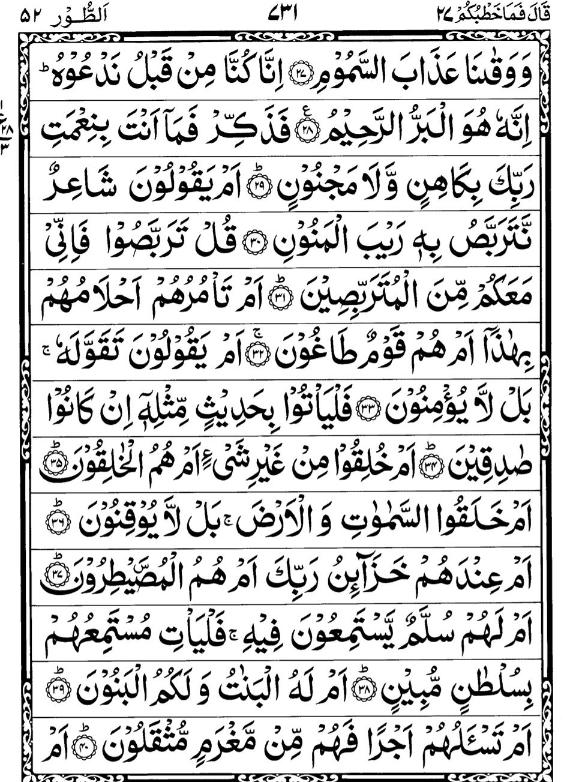 قَالَ فَمَا خَطْبُكُمْ ۲۷ ۷۳۱ اَلطُّوْر ۵۲
وَوَقٰىنَا عَذَابَ السَّمُوْمِ ﴿۲۷﴾ اِنَّا كُنَّا مِنْ قَبْلُ نَدْعُوْهُ ؕ
اِنَّهٗ هُوَ الْبَرُّ الرَّحِيْمُ ﴿۲۸﴾ ع فَذَكِّرْ فَمَاۤ اَنْتَ بِنِعْمَتِ
رَبِّكَ بِكَاهِنٍ وَّلَا مَجْنُوْنٍ ﴿ؕ۲۹﴾ اَمْ يَقُوْلُوْنَ شَاعِرٌ
نَّتَرَبَّصُ بِهٖ رَيْبَ الْمَنُوْنِ ﴿۳۰﴾ قُلْ تَرَبَّصُوْا فَاِنِّىْ
مَعَكُمْ مِّنَ الْمُتَرَبِّصِيْنَ ﴿ؕ۳۱﴾ اَمْ تَاْمُرُهُمْ اَحْلَامُهُمْ
بِهٰذَاۤ اَمْ هُمْ قَوْمٌ طَاغُوْنَ ﴿ۚ۳۲﴾ اَمْ يَقُوْلُوْنَ تَقَوَّلَهٗ ۚ
بَلْ لَّا يُؤْمِنُوْنَ ﴿۳۳﴾ فَلْيَاْتُوْا بِحَدِيْثٍ مِّثْلِهٖۤ اِنْ كَانُوْا
صٰدِقِيْنَ ﴿ؕ۳۴﴾ اَمْ خُلِقُوْا مِنْ غَيْرِ شَىْءٍ اَمْ هُمُ الْخٰلِقُوْنَ ﴿ؕ۳۵﴾
اَمْ خَلَقُوا السَّمٰوٰتِ وَ الْاَرْضَ ۚ بَلْ لَّا يُوْقِنُوْنَ ﴿ؕ۳۶﴾
اَمْ عِنْدَهُمْ خَزَآئِنُ رَبِّكَ اَمْ هُمُ الْمُصَۜيْطِرُوْنَ ﴿ؕ۳۷﴾
اَمْ لَهُمْ سُلَّمٌ يَّسْتَمِعُوْنَ فِيْهِ ۚ فَلْيَاْتِ مُسْتَمِعُهُمْ
بِسُلْطٰنٍ مُّبِيْنٍ ﴿ؕ۳۸﴾ اَمْ لَهُ الْبَنٰتُ وَ لَكُمُ الْبَنُوْنَ ﴿ؕ۳۹﴾
اَمْ تَسْـَٔلُهُمْ اَجْرًا فَهُمْ مِّنْ مَّغْرَمٍ مُّثْقَلُوْنَ ﴿ؕ۴۰﴾ اَمْ